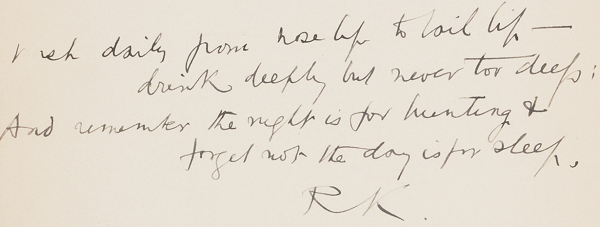 Wash daily from nose tip to tail tip —
drink deeply but never too deep;
And remember the night is for hunting &
forget not the day is for sleep.
R K.